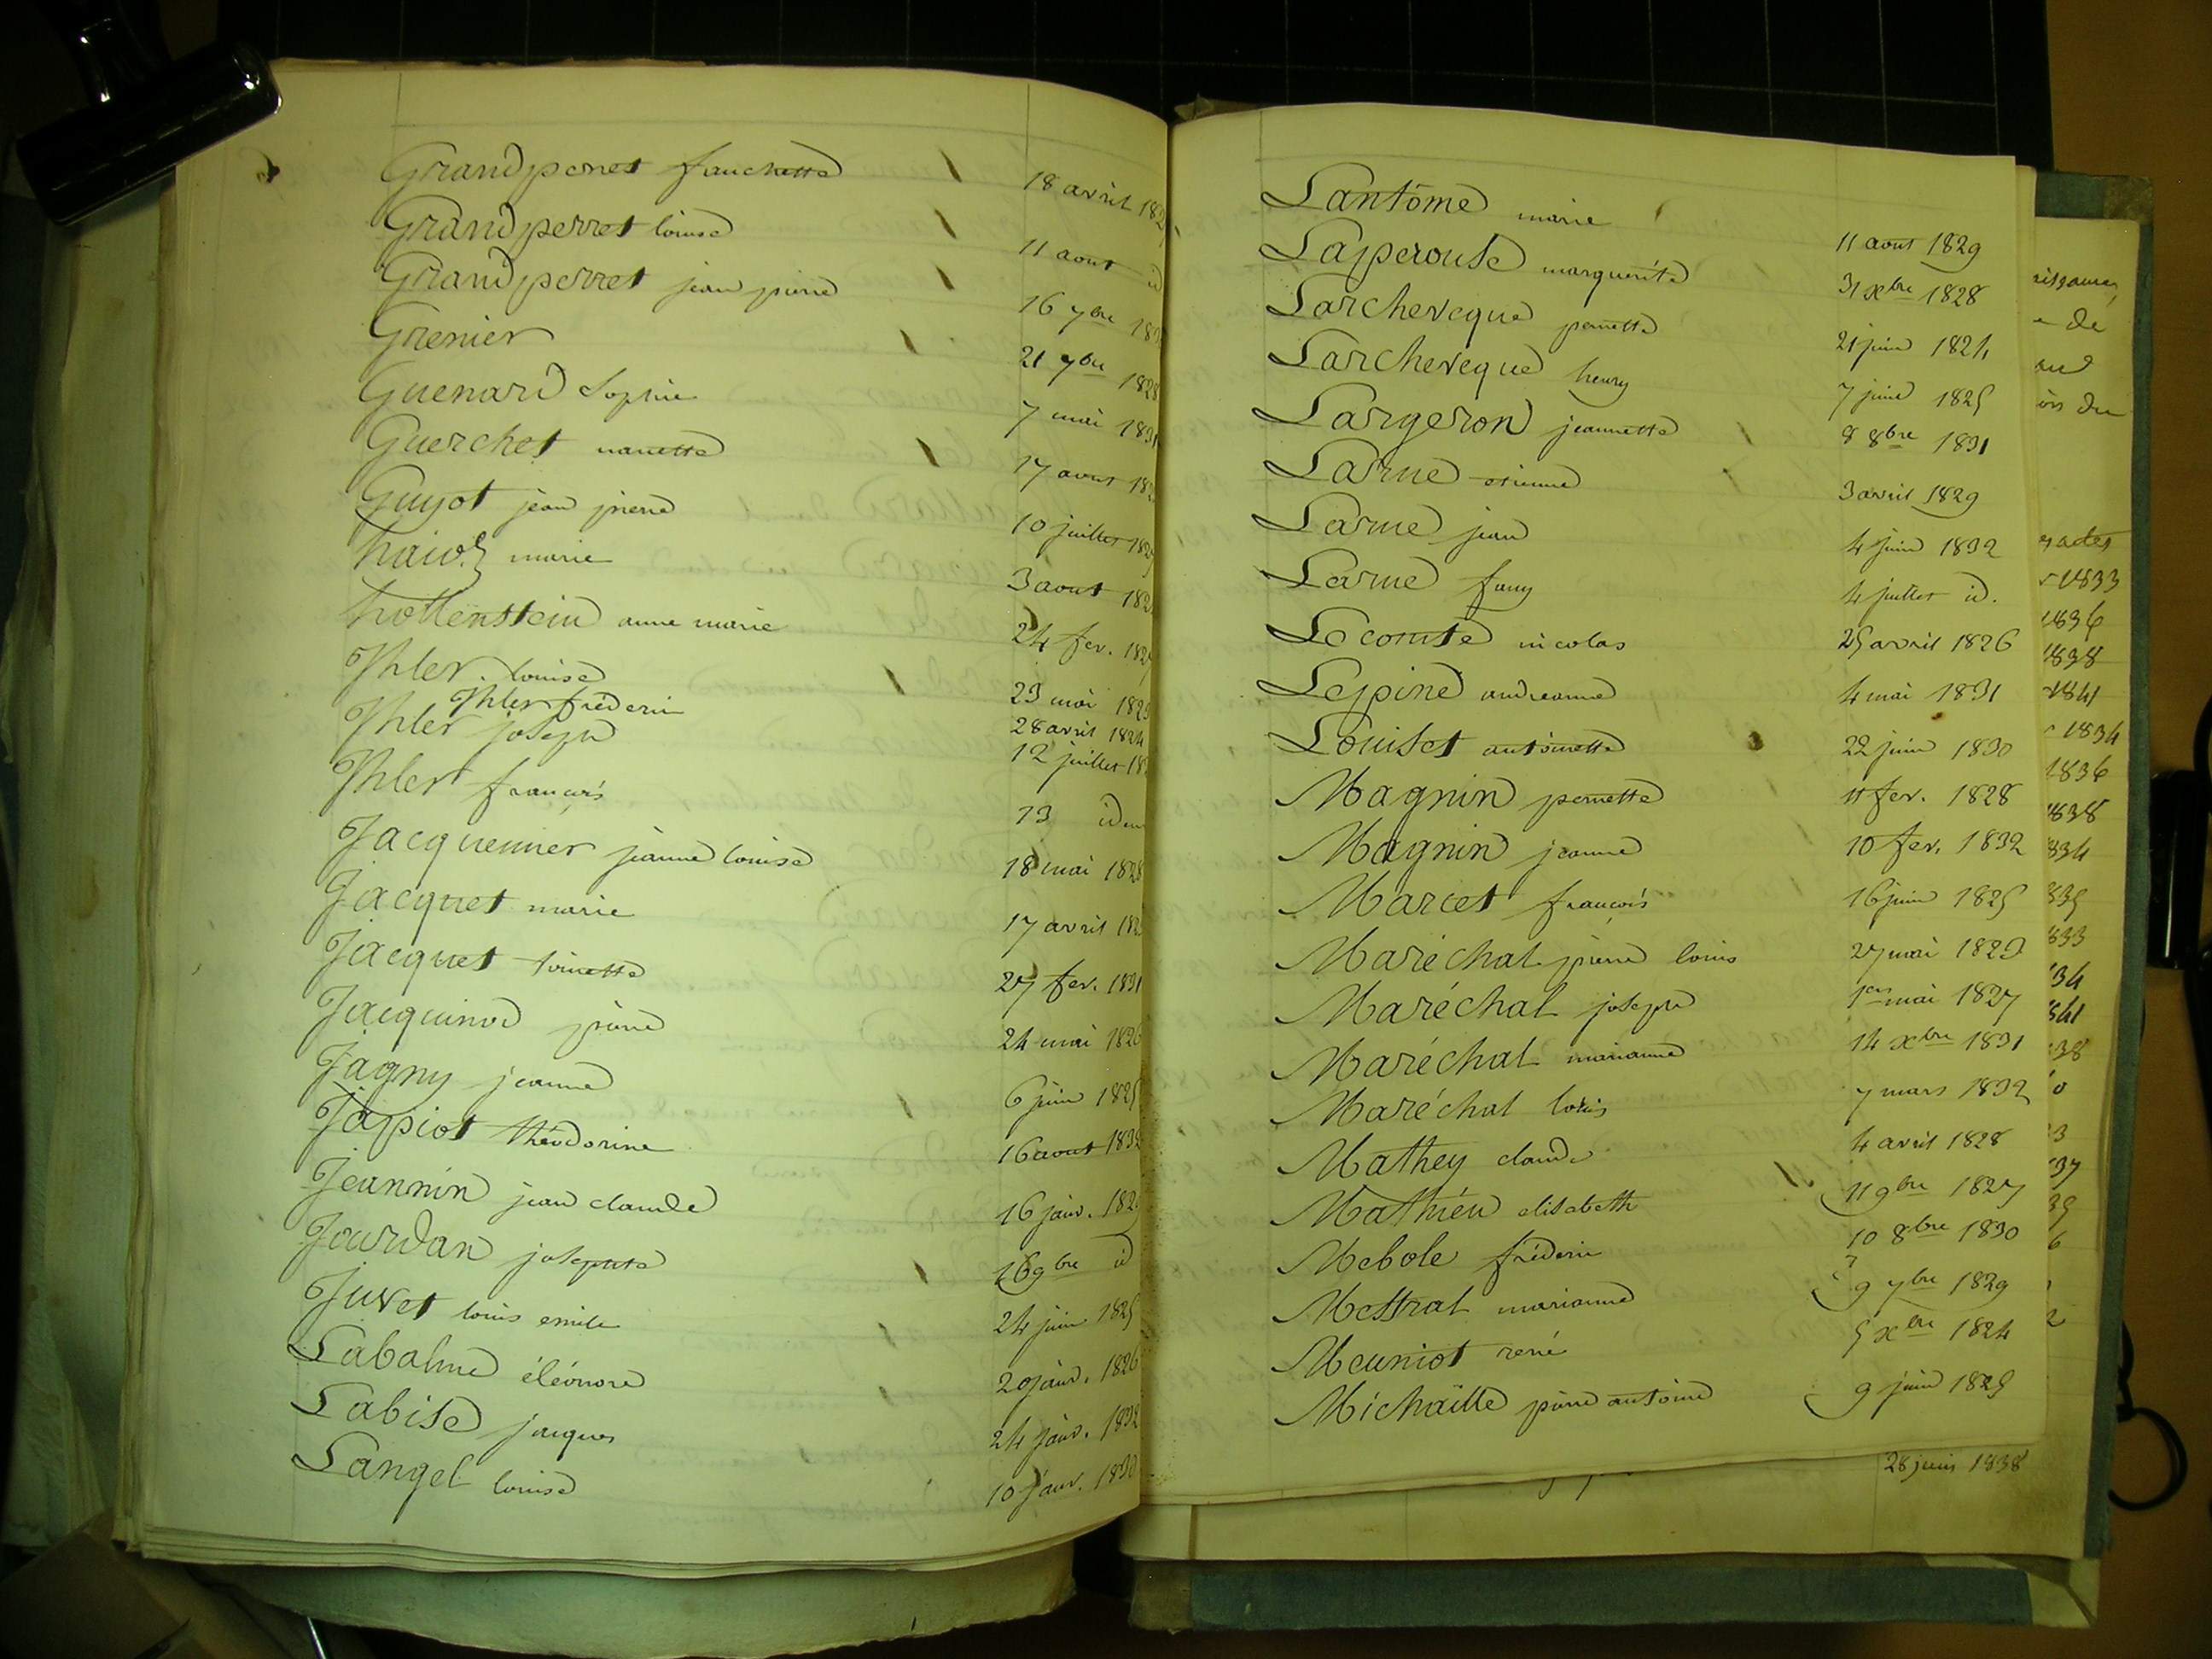 Grandperret fanchette 18 avril 182
Grandperret louise 11 aout id
Grandperret jean pierre 16 7bre 18
Grenier 21 7bre 1828
Guenard Sophie 7 mai 1831
Guerchet nanette 17 aout 18
Guyot jean pierre 10 juillet 182
marie 3 aout 182
hottenstein anne marie 24 fev. 182
Ihler louise 23 mai 182
Ihler fréderic 28 avril 1824
Ihler joseph 12 juillet 18
Ihler françois 13 idem
Jacquemier jeanne louise 18 mai 1828
Jacquet marie 17 avril 18
Jacquet toinette 27 fev. 1831
Jacquinod pierre 24 mai 1826
Jagny jeanne 6 juin 1825
Japiot théodorine 16 aout 1832
Jeannin jean claude 16 janv. 182
Jourdan josephte 16 9bre id
Juvet louis emile 24 juin 1825
Labalme éléonore 20 janv. 1826
Labise jacques 24 janv. 1832
Langel louise 10 janv. 1830
Lantôme marie 11 aout 1829
Laperouse marguerite 31 xbre 1828
Larcheveque pernette 21 juin 1824
Larcheveque henry 7 juin 1825
Largeron jeannette 8 8bre 1831
Larme etienne 3 avril 1829
Larme jean 4 juin 1832
Larme fany 4 juillet id.
Lecomte nicolas 25 avril 1826
Lepine andreanne 4 mai 1831
Louiset antoinette 22 juin 1830
Magnin pernette 11 fev. 1828
Magnin jeanne 10 fev. 1832
Marcet françois 16 juin 1825
Maréchal pierre louis 27 mai 1823
Maréchal joseph 1er mai 1827
Maréchal marianne 14 xbre 1831
Maréchal louis 7 mars 1832
Mathey claude 4 avril 1828
Mathieu elisabeth 11 9bre 1827
Mebole fréderic 10 8bre 1830
Mestral marianne 9 7bre 1829
Meuniot rené 5 xbre 1824
Michaille pierre antoine 9 juin 1825
28 juin 1838
de
du
actes
1833
1836
1838
1841
1834
1836